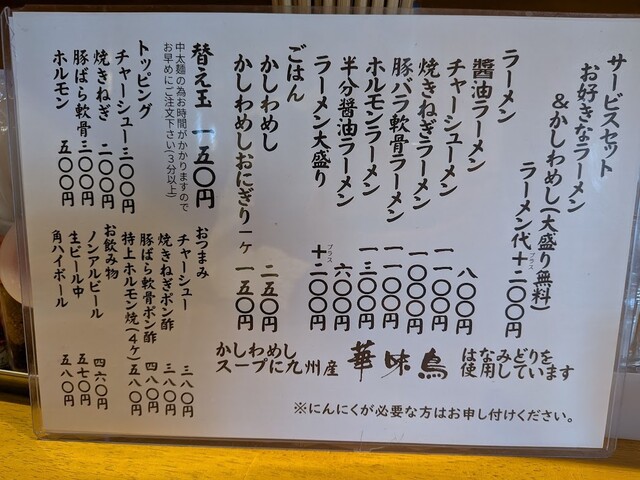 サービスセット
お好きなラーメン
&かしわめし(大盛り無料)
ラーメン代+プラス二〇〇円
ラーメン
醤油ラーメン 八〇〇円
チャーシューメン 一一〇〇円
焼きねぎラーメン 一〇〇〇円
豚バラ軟骨ラーメン 一一〇〇円
ホルモンラーメン 一三〇〇円
半分醤油ラーメン 六〇〇円
ラーメン大盛り +プラス二〇〇円
ごはん
かしわめし 二五〇円
かしわめしおにぎり一ヶ 一五〇円
替え玉 一五〇円
中太麺の為お時間がかかりますので
お早めにご注文下さい(3分以上)
トッピング
チャーシュー三〇〇円
焼きねぎ 二〇〇円
豚ばら軟骨 三〇〇円
ホルモン 五〇〇円
おつまみ
チャーシュー 三八〇円
焼きねぎポン酢 三八〇円
豚ばら軟骨ポン酢 四八〇円
特上ホルモン焼(4ケ) 五八〇円
お飲み物
ノンアルビール 四六〇円
生ビール中 五七〇円
角ハイボール 五八〇円
かしわめし
スープに九州産
華味鳥
はなみどりを
使用しています
※にんにくが必要な方はお申し付けください。